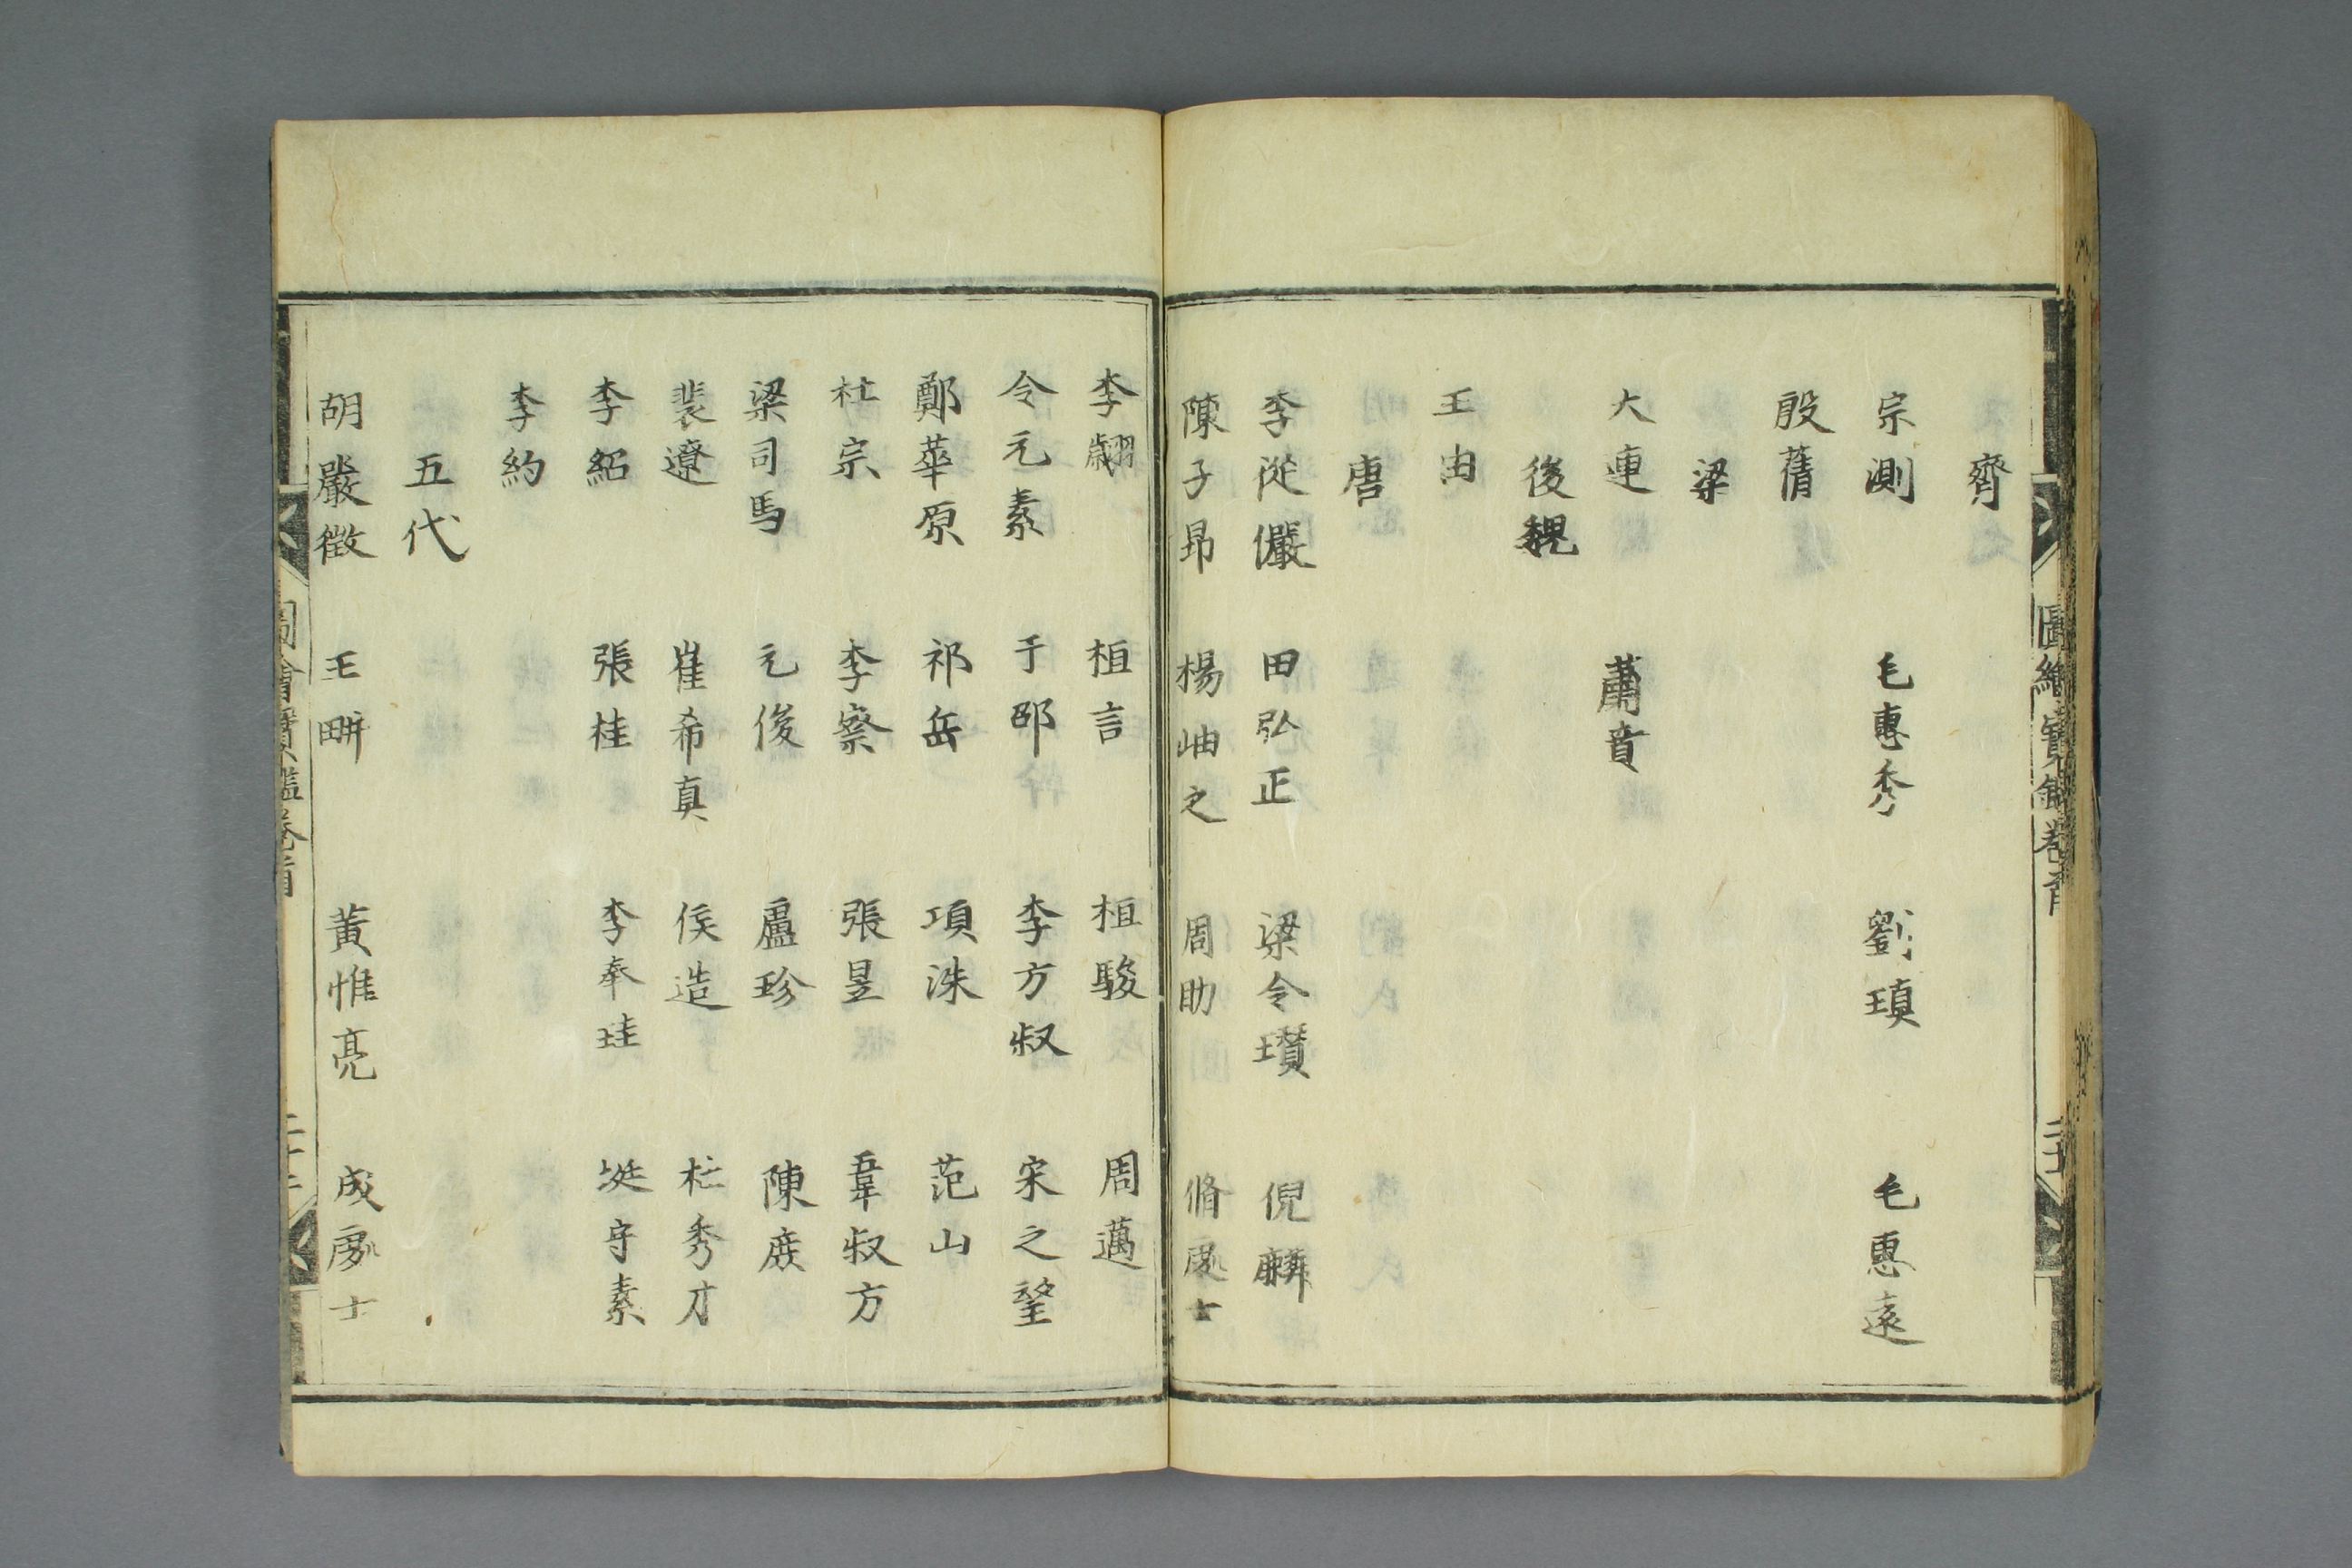 圖繪寶鑑卷首
齊
宗測 毛惠秀 劉瑱 毛惠遠
殷蒨
梁
大連 蕭音
後魏
王由
唐
李從儼 田弘正 梁令瓚 倪麟
陳子昻 楊岫之 周助 脩處士
李翽 桓言 桓駿 周邁
令元素 于邵 李方叔 宋之望
鄭華原 祁岳 項洙 范山
杜宗 李察 張昱 韋叔方
梁司馬 元俊 盧珍 陳庶
裴遼 崔希真 侯造 杜秀才
李紹 張桂 李奉珪 梃守素
李約
五代
胡嚴徵 王畊 黃惟亮 成處士
圖繪寶鑑卷首